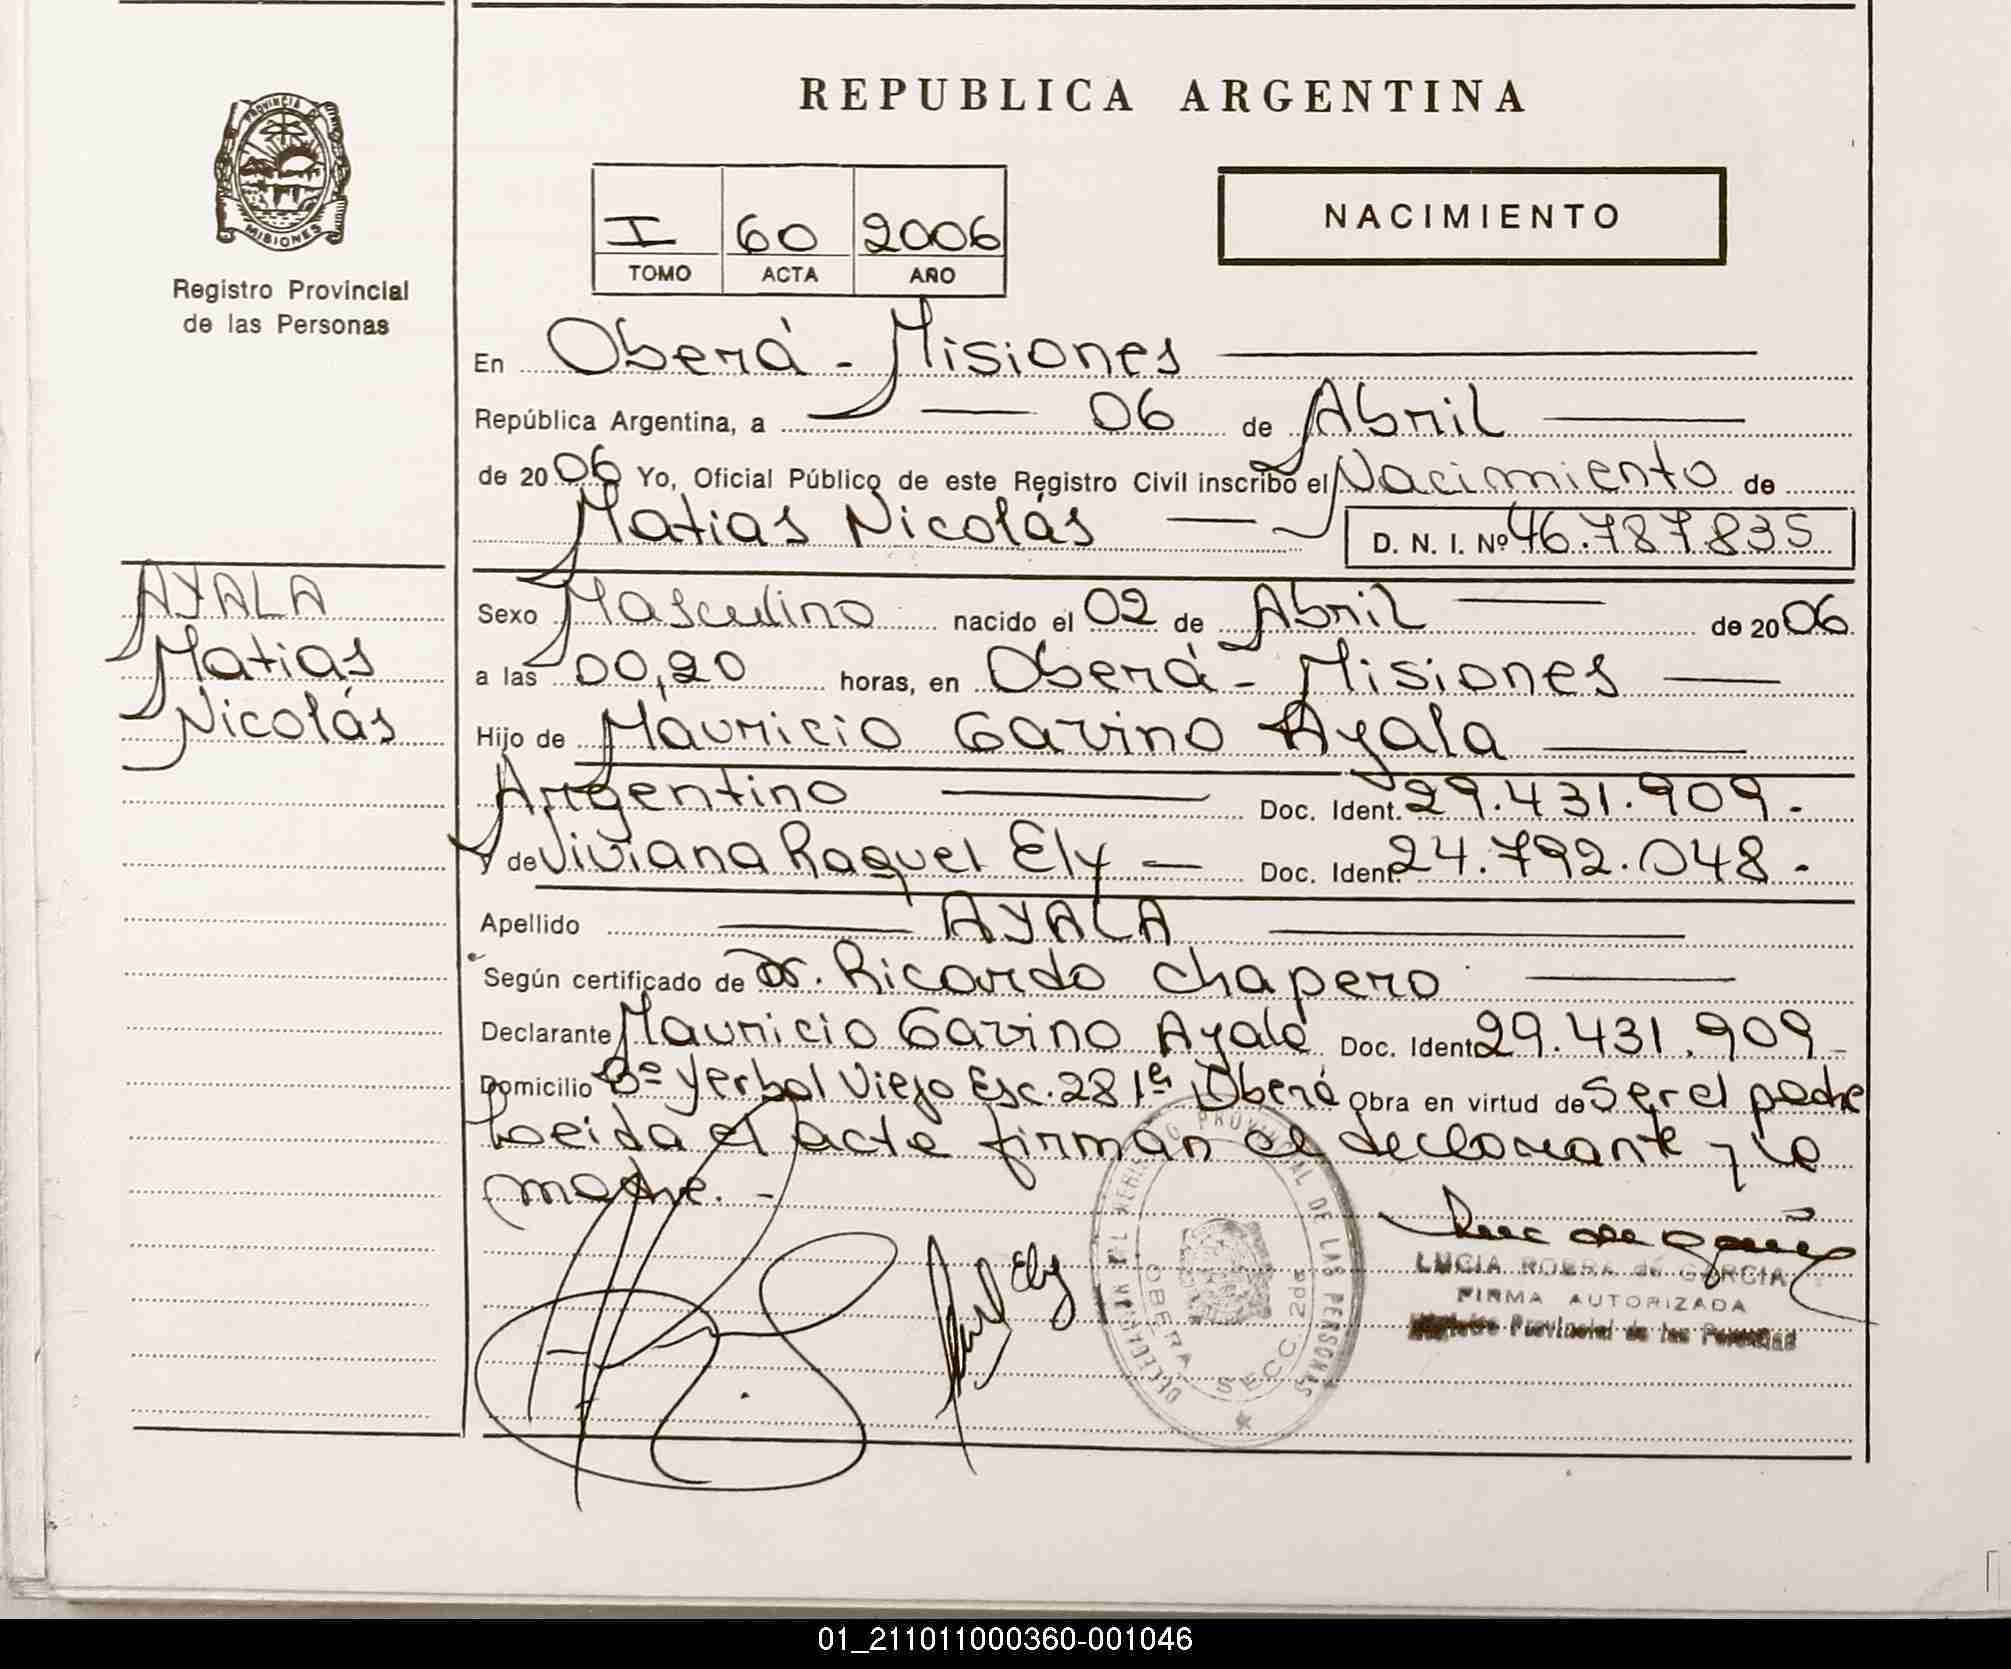 REPUBLICA ARGENTINA
PROVINCIA DE
MISIONES
Registro Provincial
de las Personas
I 60 2006
TOMO ACTA AÑO
NACIMIENTO
En Oberá - Misiones
República Argentina, a 06 de Abril
de 2006 Yo, Oficial Público de este Registro Civil inscribo el Nacimiento de
Matias Nicolás D. N. I. Nº 46.787.835
AYALA
Matias
Nicolás
Sexo Masculino nacido el 02 de Abril de 2006
a las 00,20 horas, en Oberá - Misiones
Hijo de Mauricio Gavino Ayala
Argentino Doc. Ident. 29.431.909.-
y de Viviana Raquel Ely Doc. Ident. 24.792.048.-
Apellido AYALA
Según certificado de Dr. Ricardo Chapero
Declarante Mauricio Gavino Ayala Doc. Ident. 29.431.909
Domicilio Bº Yerbal Viejo Esc. 281ª Oberá Obra en virtud de ser el padre
Leida el acta firman el declarante y la
madre.-
Ely
DELEGACION DEL REGISTRO PROVINCIAL DE LAS PERSONAS
OBERA SECC. 2da
LUCIA de GARCIA
FIRMA AUTORIZADA
Registro Provincial de las Personas
01_211011000360-001046